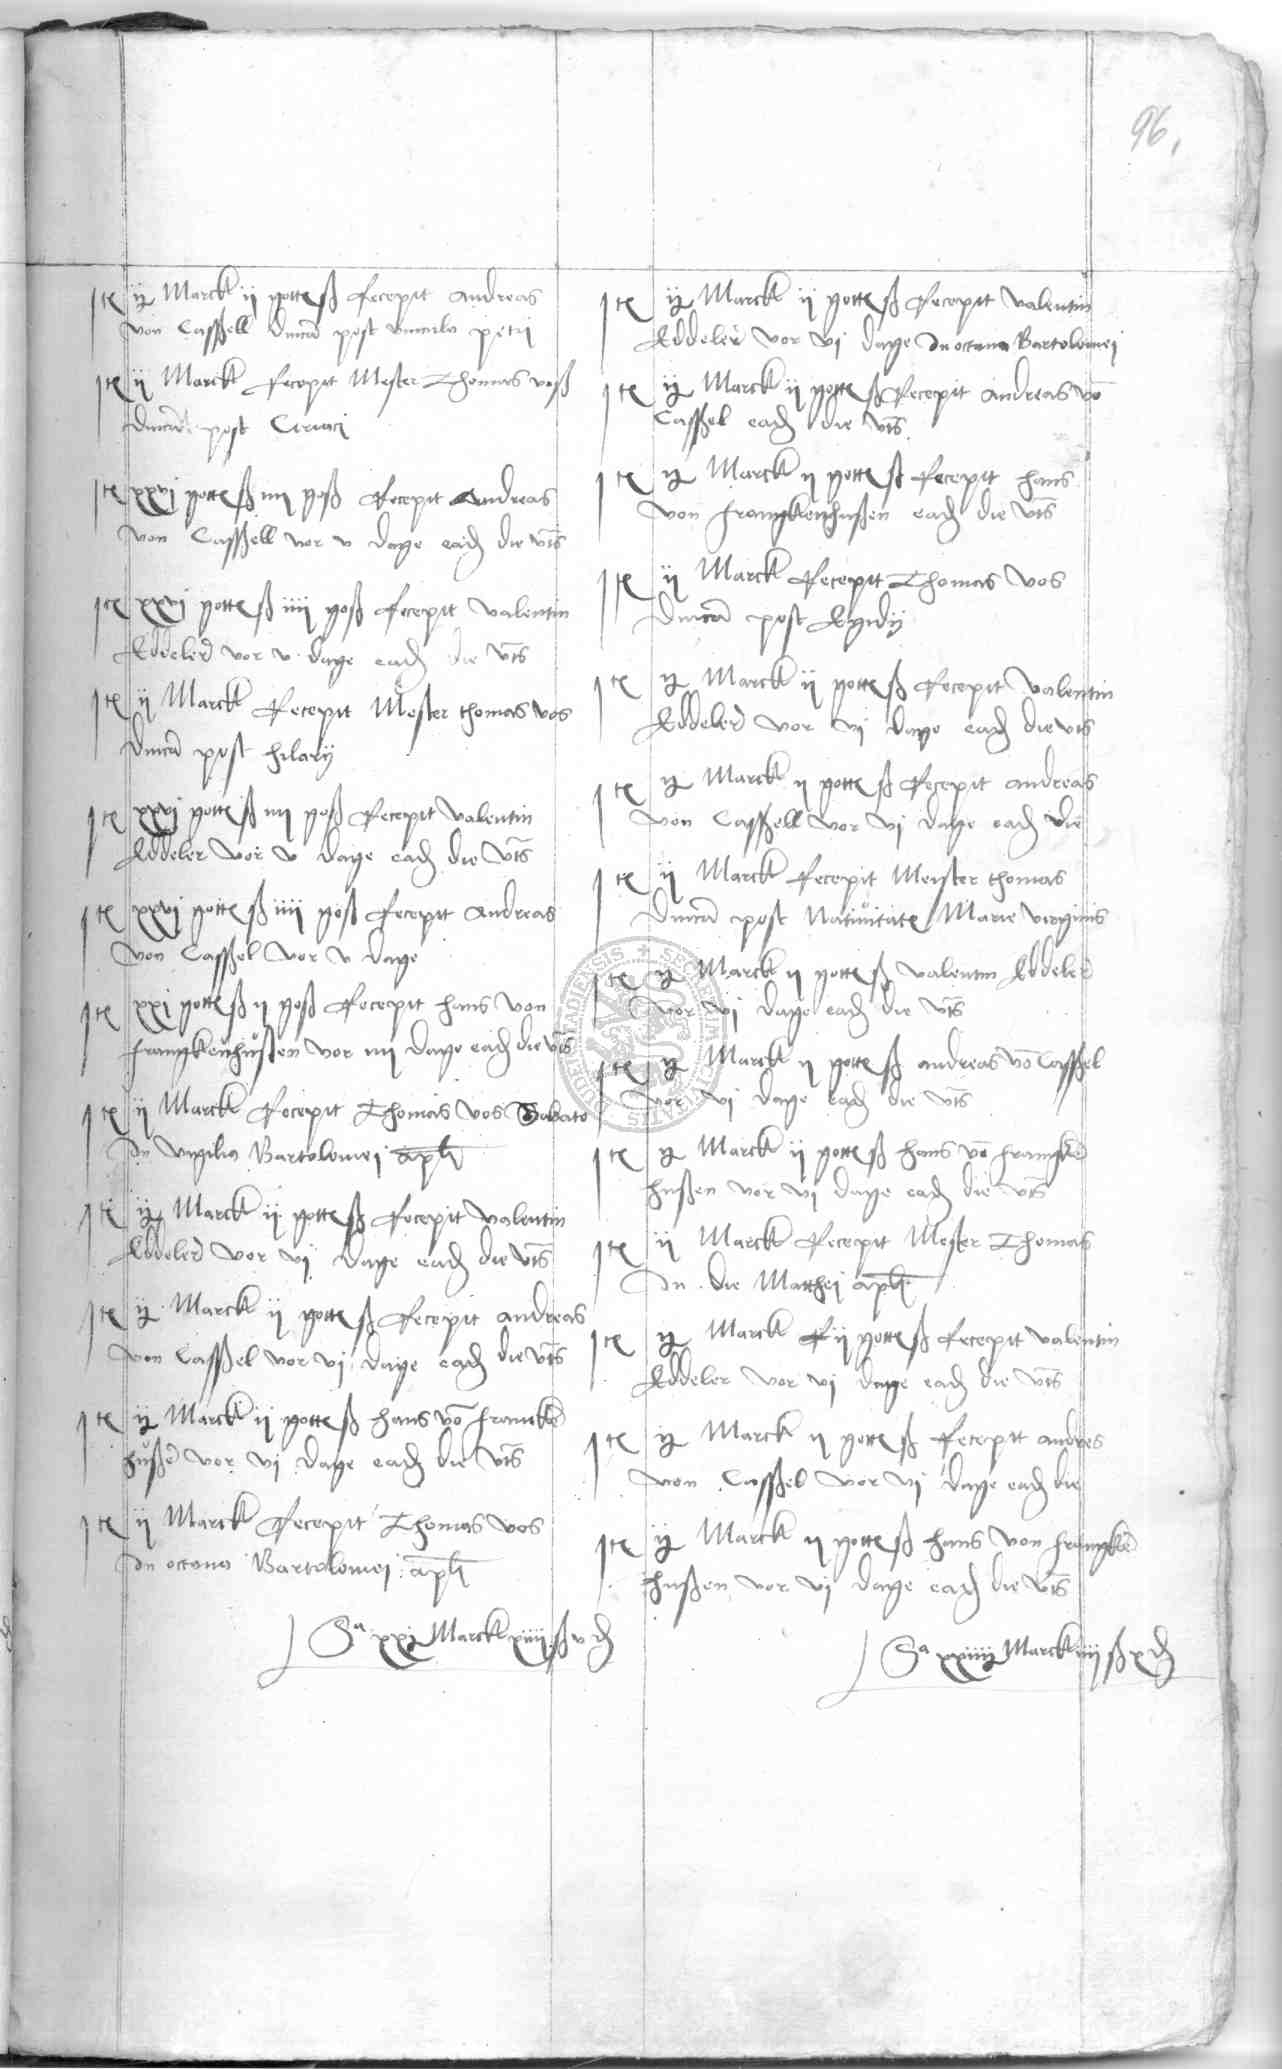 96.
Ite ij Marck ij gotteß Recepit Andreas
von Casßell dnica post vincula petri
Ite ij Marck Recepit Mester Thomas voß
dnica post Ciriaci
Ite xxvj gotteß iiij goß Recepit Andreas
von Casßell vor v dage ead die vts
Ite xxvj gotteß iiij goß Recepit valentin
Eddeler vor v dage ead die vts
Ite ij Marck Recepit Mester thomas vos
dnica post hilarij
Ite xxvj gotteß iiij goß Recepit valentin
Eddeler vor v dage ead die vts
Ite xxvj gotteß iiij goß Recepit Andreas
von Casßel vor v dage
Ite xxj gotteß ij goß Recepit hans von
franygkenhußen vor iiij dage ead die vts
Ite ij Marck Recepit Thomas vos Sabato
In vigilia Bartolomei apli
Ite ij Marck ij gotteß Recepit valentin
Eddeler vor vj dage ead die vts
Ite ij Marck ij gotteß Recepit andreas
von Casßel vor vj dage ead die vts
Ite ij Marck ij gotteß hans vo francke
hußen vor vj dage ead die vts
Ite ij Marck Recepit Thomas vos
In octava Bartolomei apli
Sa xxj Marck xiiij ß v d
Ite ij Marck ij gotteß Recepit valentin
Eddeler vor vj dage In octava Bartolomei
Ite ij Marck ij gotteß Recepit andreas vo
Casßel ead die vts
Ite ij Marck ij gotteß Recepit hans
von franygkenhußen ead die vts
Ite ij Marck Recepit Thomas vos
dnica post Egidij
Ite ij Marck ij gotteß Recepit valentin
Eddeler vor vj dage ead die vts
Ite ij Marck ij gotteß Recepit andreas
von Casßell vor vj dage ead die
Ite ij Marck Recepit Meister thomas
dnica post Nativitate Marie virginis
Ite ij Marck ij gotteß valentin Eddeler
vor vj dage ead die vts
Ite ij Marck ij gotteß andreas vo Casßel
vor vj dage ead die vts
Ite ij Marck ij gotteß hans vo franygke
hußen vor vj dage ead die vts
Ite ij Marck Recepit Mester Thomas
In die Matthei apli
Ite ij Marck ij gotteß Recepit valentin
Eddeler vor vj dage ead die vts
Ite ij Marck ij gotteß Recepit andres
von Casßel vor vj dage ead die
Ite ij Marck ij gotteß hans von franygke
hußen vor vj dage ead die vts
Sa xxiiij Marck iiij ß x d